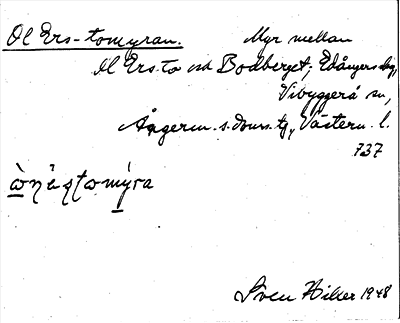 Ol Ers-tomyran. Myr mellan
Ol Ers-to och Bodberget; Edångers by,
Vibyggerå sn,
Ångerm. s. doms. tg., Västern. l.
737
Sven Hiller 1948